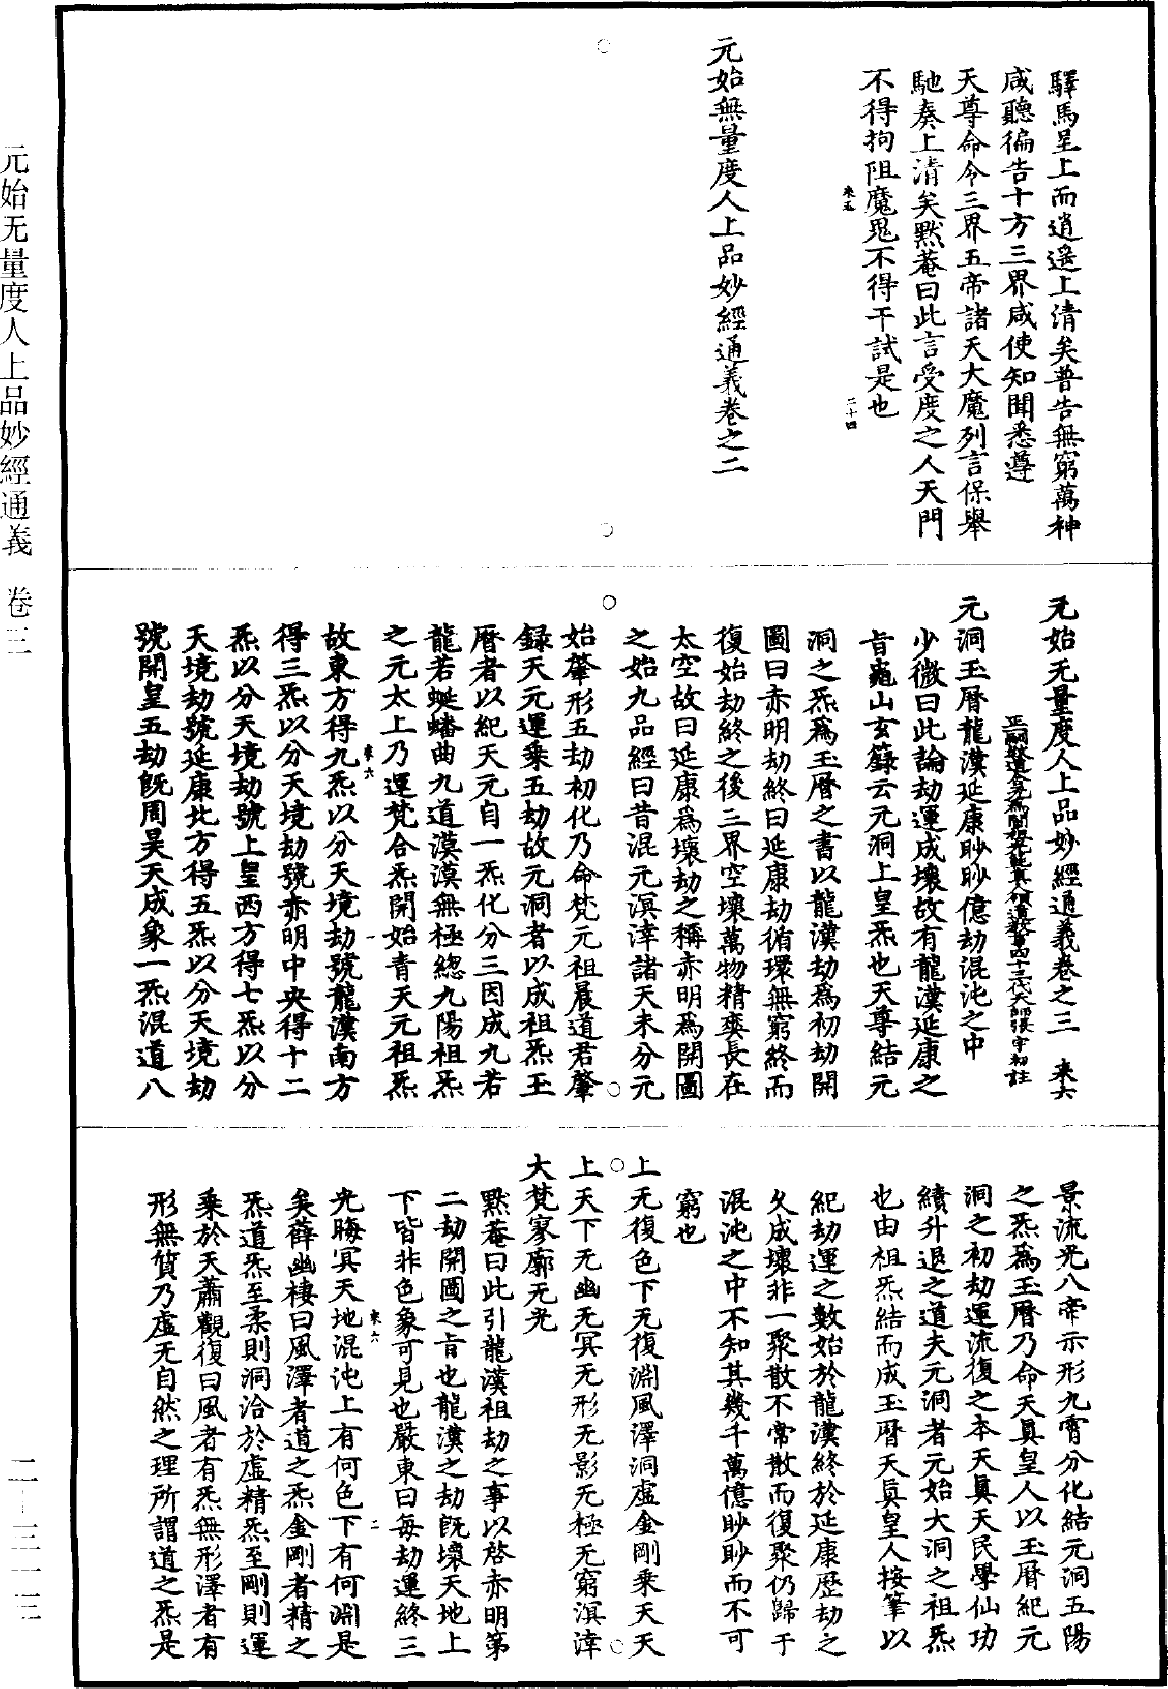 驛馬呈上而逍遙上清矣普告無窮萬神
咸聽徧告十方三界咸使知聞悉遵
天尊命令三界五帝諸天大魔列言保舉
馳奏上清矣默菴曰此言受度之人天門
不得拘阻魔鬼不得干試是也
來五
二十四
元始無量度人上品妙經通義卷之二
元始无量度人上品妙經通義卷之三
來六
四十三代天師張宇初註
元洞玉曆龍漢延康眇眇億劫混沌之中
少微曰此論劫運成壞故有龍漢延康之
旨龜山玄籙云元洞上皇炁也天尊結元
洞之炁爲玉曆之書以龍漢劫爲初劫開
圖曰赤明劫終曰延康劫循環無窮終而
復始劫終之後三界空壞萬物精爽長在
太空故曰延康爲壞劫之稱赤明爲開圖
之始九品經曰昔混元溟涬諸天未分元
始肇形五劫初化乃命梵元祖晨道君肇
錄天元運乘五劫故元洞者以成祖炁玉
曆者以紀天元自一炁化分三因成九若
龍若蜒蟠曲九道漠漠無極總九陽祖炁
之元太上乃運梵合炁開始青天元祖炁
來六
一
故東方得九炁以分天境劫號龍漢南方
得三炁以分天境劫號赤明中央得十二
炁以分天境劫號上皇西方得七炁以分
天境劫號延康北方得五炁以分天境劫
號開皇五劫旣周昊天成象一炁混道八
景流光八帝示形九霄分化結元洞五陽
之炁爲玉曆乃命天眞皇人以玉曆紀元
洞之初劫運流復之本天眞天民學仙功
績升退之道夫元洞者元始大洞之祖炁
也由祖炁結而成玉曆天眞皇人按筆以
紀劫運之數始於龍漢終於延康歷劫之
久成壞非一聚散不常散而復聚仍歸于
混沌之中不知其幾千萬億眇眇而不可
窮也
上无復色下无復淵風澤洞虛金剛乘天天
上天下无幽无冥无形无影无極无窮溟涬
大梵寥廓无光
默菴曰此引龍漢祖劫之事以啓赤明第
二劫開圖之旨也龍漢之劫旣壞天地上
下皆非色象可見也嚴東曰每劫運終三
來六
二
光晦冥天地混沌上有何色下有何淵是
矣薛幽棲曰風澤者道之炁金剛者精之
炁道炁至柔則洞洽於虛精炁至剛則運
乘於天蕭觀復曰風者有炁無形澤者有
形無質乃虛无自然之理所謂道之炁是
元始无量度人上品妙經通義
卷三
二—三一三